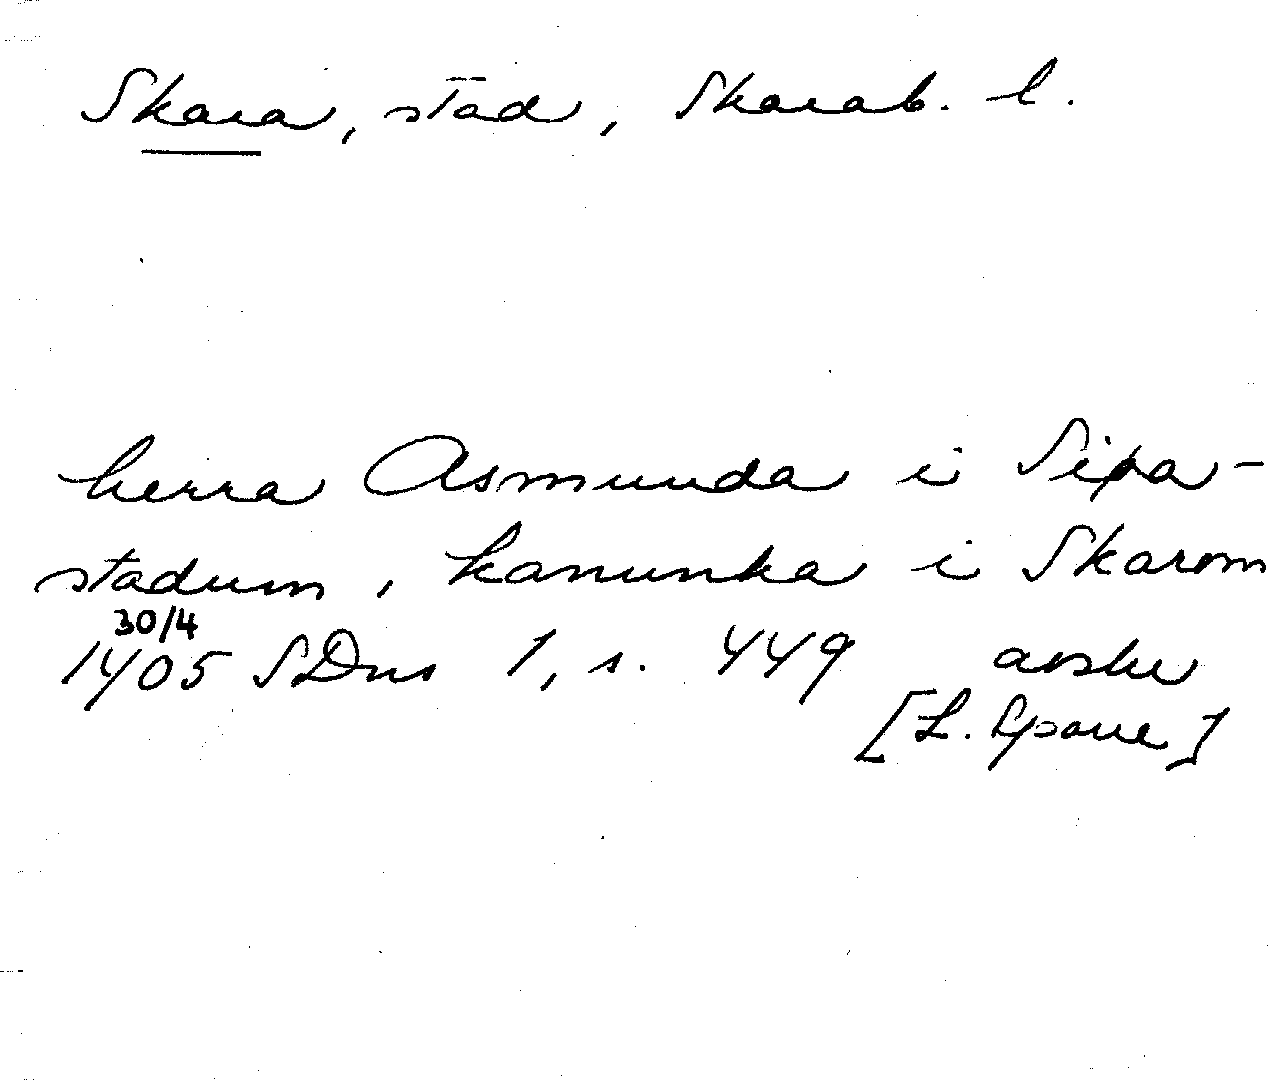 Skara, stad, Skarab. l.
herra Asmunda i Sipa-
stadum, kanunka i Skarom
30/4
1405 SDns 1, s. 449 avskr
[L. Spove]